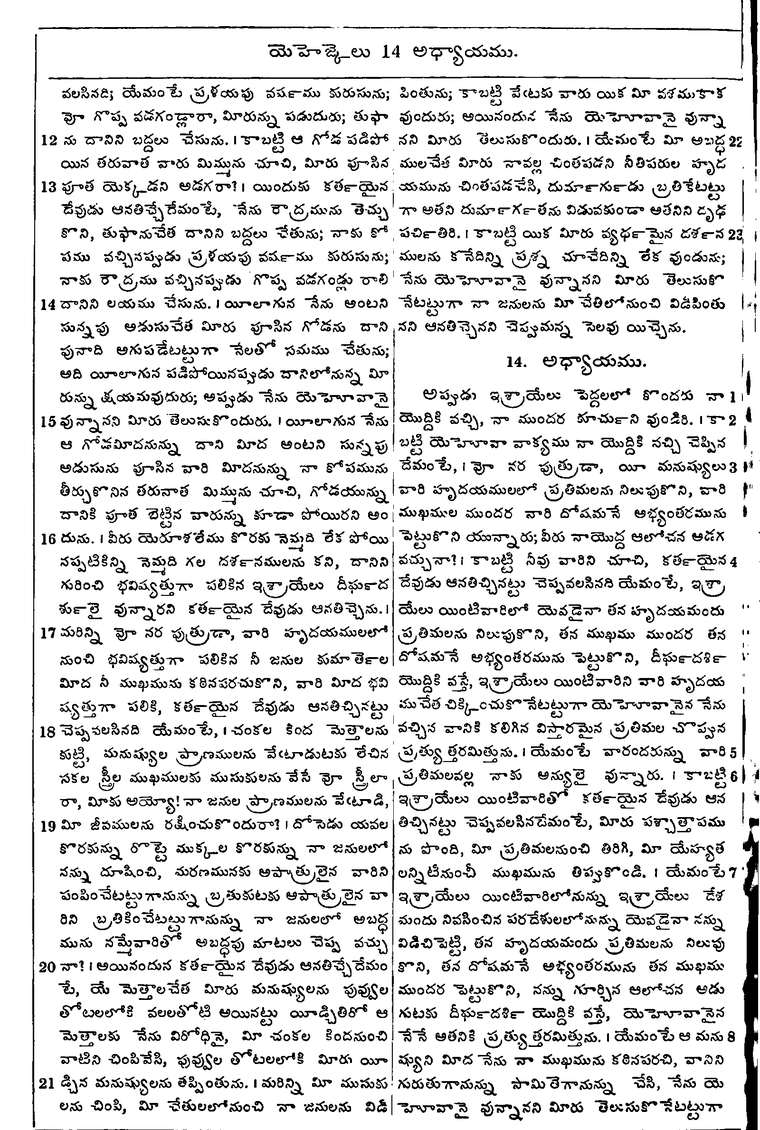 యెహెజ్కేలు 14 అధ్యాయము.
వలసినది; యేమంటే ప్రళయపు వర్షము కురుసును;
వోా గొప్ప వడగండ్లారా, మీరున్ను పడుదురు; తుఫా
12 ను దానిని బద్దలు చేసును. । కాబట్టి ఆ గోడ పడిపో
యిన తరువాత వారు మిమ్మును చూచి, మీరు పూసిన
13 పూత యెక్కడని అడగరా? । యిందుకు కర్తయైన
దేవుడు ఆనతిచ్చేదేమంటే, నేను రౌద్రమును తెచ్చు
కొని, తుఫానుచేత దానిని బద్దలు చేతును; నాకు కో
పము వచ్చినప్పుడు ప్రళయపు వర్షము కురుసును;
నాకు రౌద్రము వచ్చినప్పుడు గొప్ప వడగండ్లు రాలి
14 దానిని లయము చేసును. । యీలాగున నేను అంటని
సున్నపు అడుసుచేత మీరు పూసిన గోడను దాని
పునాది ఆగుపడేటట్టుగా నేలతో సమము చేతును;
అది యీలాగున పడిపోయినప్పుడు దానిలోనున్న మీ
రున్ను క్షయమవుదురు; అప్పుడు నేను యెహోవానై
15 వున్నానని మీరు తెలుసుకొందురు. । యీలాగున నేను
ఆ గోడమీదనున్ను దాని మీద అంటని సున్నపు
అడుసును పూసిన వారి మీదనున్ను నా కోపమును
తీర్చుకొనిన తరువాత మిమ్మును చూచి, గోడయున్ను
దానికి పూత బెట్టిన వారున్ను కూడా పోయిరని అం
16 దును. । వీరు యెరూశలేము కొరకు నెమ్మది లేక పోయి
నప్పటికిన్ని నెమ్మది గల దర్శనములను కని, దానిని
గురించి భవిష్యత్తుగా పలికిన ఇశ్రాయేలు దీర్ఘద
ర్శులై వున్నారని కర్తయైన దేవుడు ఆనతిచ్చెను. ।
17 మరిన్ని వోా నర పుత్రుడా, వారి హృదయములలో
నుంచి భవిష్యత్తుగా పలికిన నీ జనుల కుమార్తెల
మీద నీ ముఖమును కఠినపరచుకొని, వారి మీద భవి
ష్యత్తుగా పలికి, కర్తయైన దేవుడు ఆనతిచ్చినట్టు
18 చెప్పవలసినది యేమంటే, । చంకల కింద మెత్తాలను
కుట్టి, మనుష్యుల ప్రాణములను వేటాడుటకు లేచిన
సకల స్త్రీల ముఖములకు ముసుకులను వేసే వోా స్త్రీలా
రా, మీకు అయ్యో! నా జనుల ప్రాణములను వేటాడి,
19 మీ జీవములను రక్షించుకొందురా? । దోసెడు యవల
కొరకున్ను రొట్టె ముక్కల కొరకున్ను నా జనులలో
నన్ను దూషించి, మరణమునకు అపాత్రులైన వారిని
పంపించేటట్టుగానున్ను బ్రతుకుటకు ఆపాత్రులైన వా
రిని బ్రతికించేటట్టుగానున్ను నా జనులలో అబద్ధ
మును నమ్మేవారితో అబద్ధపు మాటలు చెప్ప వచ్చు
20 నా? । అయినందున కర్తయైన దేవుడు ఆనతిచ్చేదేమం
టే, యే మెత్తాలచేత మీరు మనుష్యులను పువ్వుల
తోటలలోకి వలలతోటి ఆయినట్టు యీడ్చితిరో ఆ
మెత్తాలకు నేను విరోధినై, మీ చంకల కిందనుంచి
వాటిని చింపివేసి, పువ్వుల తోటలలోకి మీరు యీ
21 డ్చిన మనుష్యులను తప్పింతును. । మరిన్ని మీ ముసుకు
లను చింపి, మీ చేతులలోనుంచి నా జనులను విడి
పింతును; కాబట్టి వేటకు వారు యిక మీ వశముకాక
వుందురు; అయినందున నేను యెహోవానై వున్నా
నని మీరు తెలుసుకొందురు. । యేమంటే మీ అబద్ధ 22
ములచేత మీరు నావల్ల చింతపడని నీతిపరుల హృద
యమును చింతపడచేసి, దుర్మార్గుడు బ్రతికేటట్టు
గా అతని దుర్మార్గతను విడువకుండా ఆతనిని దృఢ
పర్చితిరి. । కాబట్టి యిక మీరు వ్యర్థమైన దర్శన 23
ములను కనేదిన్ని ప్రశ్న చూచేదిన్ని లేక వుండును;
నేను యెహోవానై వున్నానని మీరు తెలుసుకొ
నేటట్టుగా నా జనులను మీ చేతిలోనుంచి విడిపింతు
నని ఆనతిచ్చెనని చెప్పుమన్న సెలవు యిచ్చెను.
14. అధ్యాయము.
అప్పుడు ఇశ్రాయేలు పెద్దలలో కొందరు నా 1
యొద్దికి వచ్చి, నా ముందర కూర్చుని వుండిరి. । కా 2
బట్టి యెహోవా వాక్యము నా యొద్దికి వచ్చి చెప్పిన
దేమంటే, । వోా నర పుత్రుడా, యీ మనుష్యులు 3
వారి హృదయములలో ప్రతిమలను నిలుపుకొని, వారి
ముఖముల ముందర వారి దోషమనే అభ్యంతరమును
పెట్టుకొని యున్నారు; వీరు నాయొద్ద ఆలోచన అడగ
వచ్చునా? । కాబట్టి నీవు వారిని చూచి, కర్తయైన 4
దేవుడు ఆనతిచ్చినట్టు చెప్పవలసినది యేమంటే, ఇశ్రా
యేలు యింటివారిలో యెవడైనా తన హృదయమందు
ప్రతిమలను నిలుపుకొని, తన ముఖము ముందర తన
దోషమనే అభ్యంతరమును పెట్టుకొని, దీర్ఘదర్శి
యొద్దికి వస్తే, ఇశ్రాయేలు యింటివారిని వారి హృదయ
ముచేత చిక్కించుకొనేటట్టుగా యెహోవానైన నేను
వచ్చిన వానికి కలిగిన విస్తారమైన ప్రతిమల చొప్పున
ప్రత్యుత్తరమిత్తును. । యేమంటే వారందరున్ను వారి 5
ప్రతిమలవల్ల నాకు అన్యులై వున్నారు. । కాబట్టి 6
ఇశ్రాయేలు యింటివారితో కర్తయైన దేవుడు ఆన
తిచ్చినట్టు చెప్పవలసినదేమంటే, మీరు పశ్చాత్తాపము
ను పొంది, మీ ప్రతిమలనుంచి తిరిగి, మీ యేహ్యత
లన్నిటినుంచీ ముఖమును తిప్పుకొండి. । యేమంటే 7
ఇశ్రాయేలు యింటివారిలోనున్ను ఇశ్రాయేలు దేశ
మందు నివసించిన పరదేశులలోనున్ను యెవడైనా నన్ను
విడిచిపెట్టి, తన హృదయమందు ప్రతిమలను నిలుపు
కొని, తన దోషమనే అభ్యంతరమును తన ముఖము
ముందర పెట్టుకొని, నన్ను గూర్చిన ఆలోచన అడు
గుటకు దీర్ఘదర్శి యొద్దికి వస్తే, యెహోవానైన
నేనే అతనికి ప్రత్యుత్తరమిత్తును. । యేమంటే ఆ మను 8
ష్యుని మీద నేను నా ముఖమును కఠినపరచి, వానిని
గురుతుగానున్ను సామితెగానున్ను చేసి, నేను యె
హోవానై వున్నానని మీరు తెలుసుకొనేటట్టుగా